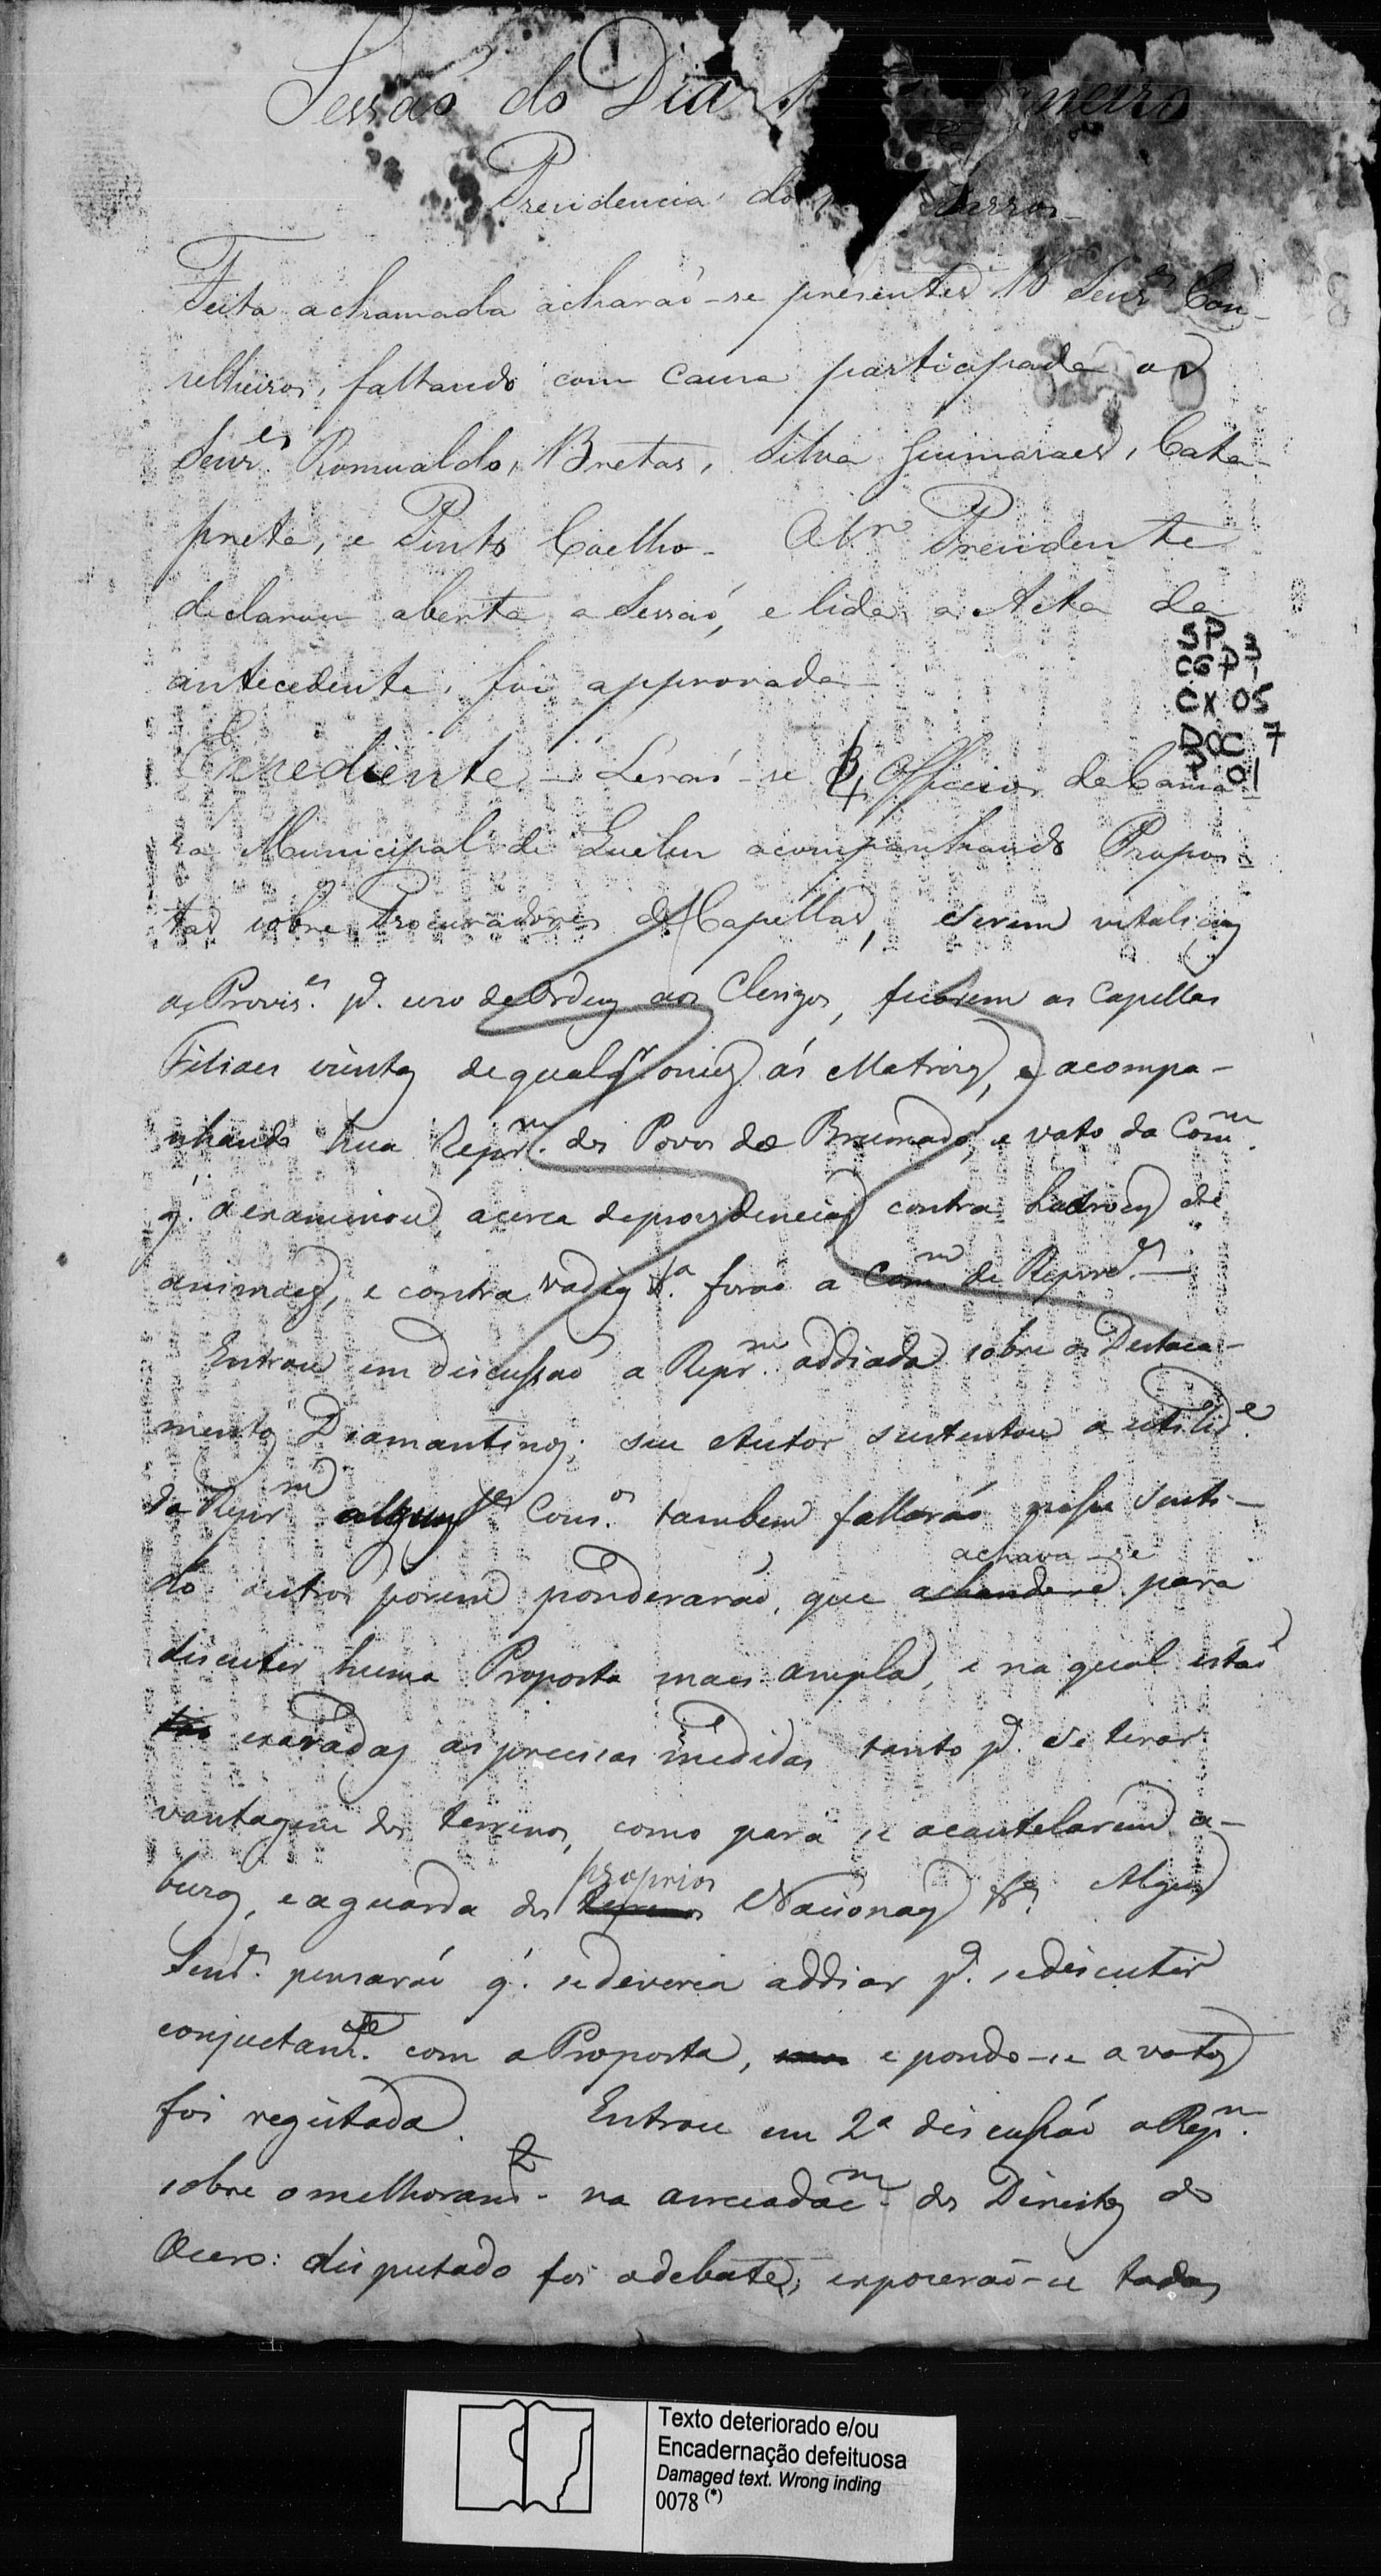 Sessaõ do Dia neiro
Presidencia do Barros
Feita a chamada acharaõ-se presentes 16 Senr.es Con-
selheiros, faltando com causa participada os
Senr.es Romualdo, Bretas, Silva Guimaraes, Cata-
preta, e Pinto Coelho - O Sr. Presidente
declarou aberta a Sessaõ, e lida a Acta da
antecedente, foi approvada -
SP 3
CGP 1
CX 05
DOC 7
P 01
Expediente - Leraõ-se 4 Officios da Cama-
ra Municipal de Queluz acompanhando Propos-
tas sobre Procuradores de Capellas, serem vitalicias
as Provis.es p.a uso de Ordens aos Clerigos, ficarem as Capellas
Filiaes izentas de qualq.r onus ás Matrizes, e acompa-
nhando hua Repr.m dos Povos do Brumado, e voto da Com.m
q. a examinou acerca de providencias contra Ladroens de
animaes, e contra vadios &.a foraõ a Com.m de Repres.es -
Entrou em discussaõ a Repr.m addiada sobre os Destaca-
mentos Diamantinos; seu Autor sustentou a utilid.e
da Repr.m alguns S.es Cons.os tambem fallaraõ nesse senti-
do outros porem ponderaraõ, que achandose achava-se para
discutir huma Proposta mais ampla, e na qual estaõ
tao exaradas as precisas medidas tanto p.a se tirar
vantagem dos terrenos, como para se acautelarem a-
busos, e a guarda dos proprios Nacionaes &.a Alguns
Senr.es pensaraõ q. se deveria addiar p.a se discutir
conjuctam.te com a Proposta, e pondo-se a votos
foi regeitada. Entrou em 2ª discussaõ a Rep.m
sobre o melhoram.to na arrecadac.m dos Direitos do
Ouro: disputado foi o debate; expozeraõ-se todas
Texto deteriorado e/ou
Encadernação defeituosa
Damaged text. Wrong inding
0078 (*)